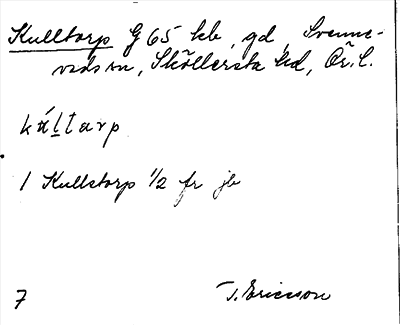 Kulltorp G 65 kb, gd, Svenne-
vads sn, Sköllersta hd, Ör. l.
kúltarp
1 Kullstorp 1/2 fr jb
7 T. Ericsson